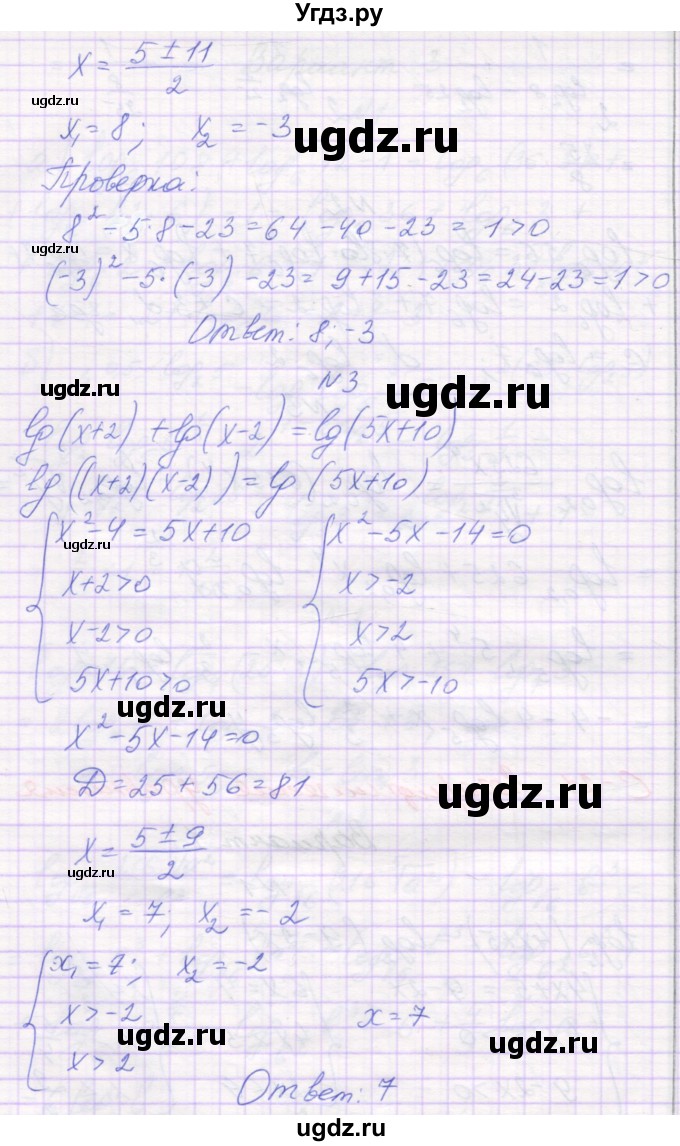 Угдз.ру
x = (5 ± 11)/2
ugdz.ru
x₁ = 8; x₂ = -3
ugdz.ru
Проверка:
8² - 5·8 - 23 = 64 - 40 - 23 = 1 > 0
ugdz.ru
(-3)² - 5·(-3) - 23 = 9 + 15 - 23 = 24 - 23 = 1 > 0
Ответ: 8; -3
N3
ugdz.ru
ugdz.ru
lg(x+2) + lg(x-2) = lg(5x+10)
lg((x+2)(x-2)) = lg(5x+10)
{ x² - 4 = 5x + 10 { x² - 5x - 14 = 0
ugdz.ru
x+2>0 x>-2
x-2>0 x>2
5x+10>0 5x>-10
ugdz.ru
x² - 5x - 14 = 0
Д = 25 + 56 = 81
ugdz.ru
x = (5 ± 9)/2
ugdz.ru
x₁ = 7; x₂ = -2
{ x₁ = 7; x₂ = -2
x > -2 x = 7
ugdz.ru
ugdz.ru
x > 2
Ответ: 7
ugdz.ru
ugdz.ru